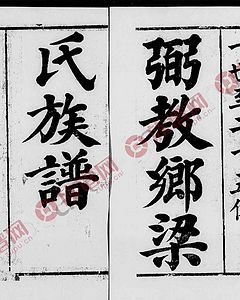 弼教鄉梁
氏族譜